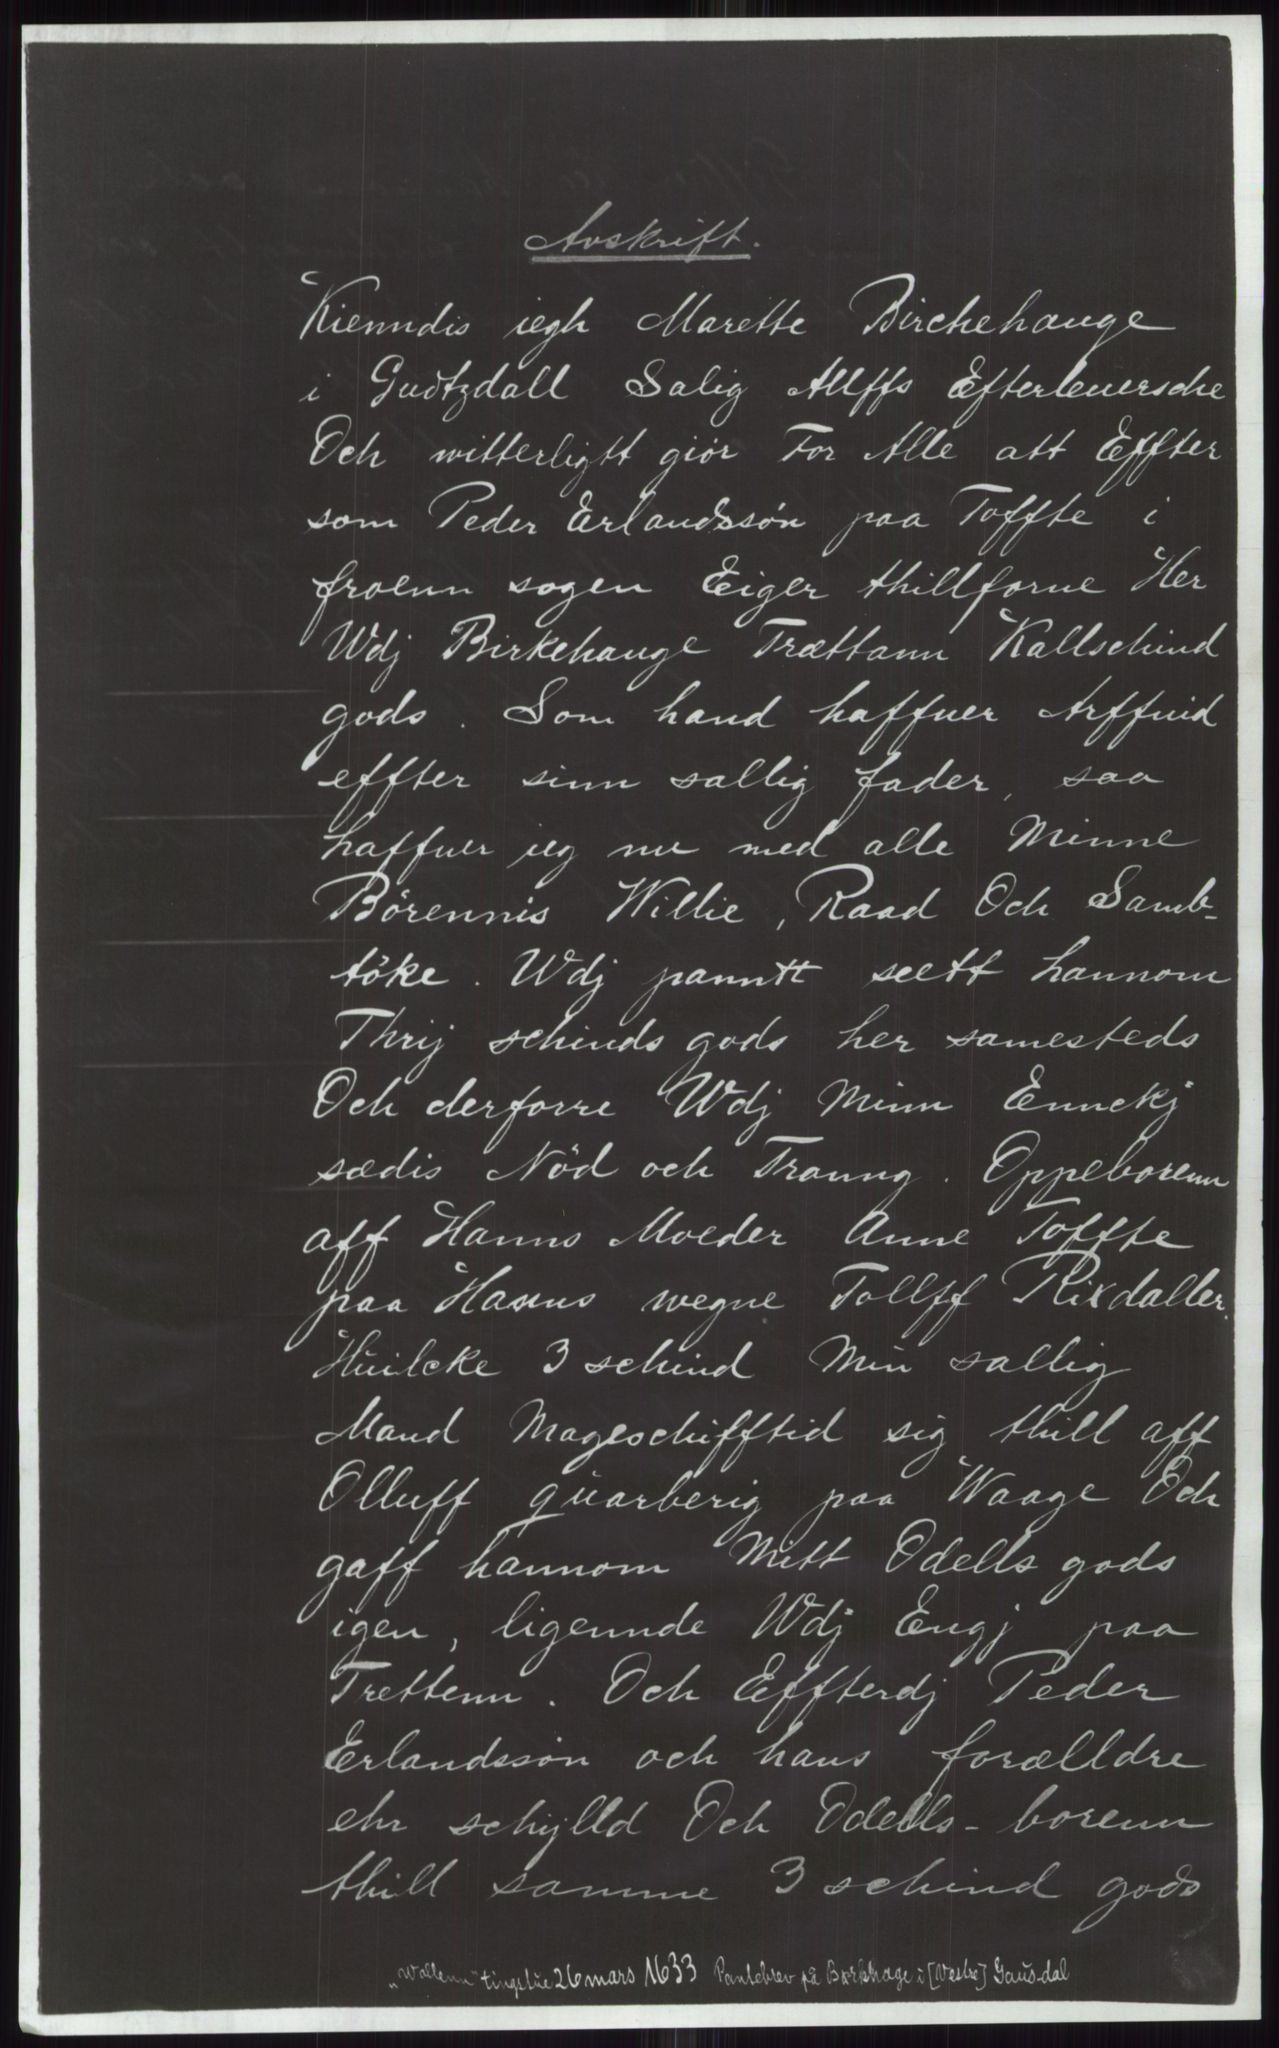 Avskrift.
Kienndis iegh Marette Birchehauge
i Gudtzdall Salig Allffs Efterleuersche
Och witterligtt giör For Alle att Effter
som Peder Erlandssön paa Toffte i
froenn sogen Eiger thillforne Her
Wdj Birkehauge Trættann Kallschind
gods. Som hand haffuer Arffuid
effter sinn sallig fader, saa
haffuer ieg nu med alle Minne
Börennis Willie, Raad Och Samb-
töke. Wdj panntt seett hannom
Thrij schinds gods her samesteds
Och derforre Wdj Minn Ennckj
sædis Nöd och Tranng. Oppeborenn
aff Hanns Moeder Anne Toffte
paa Hanns wegne Tollff Rixdaller.
Huilcke 3 schind Min sallig
Mand Mageschifftid sig thill aff
Olluff quarberig paa Waage Och
gaff hannom Mitt Odells gods
igen, ligennde Wdj Engj paa
Trettenn. Och Effterdj Peder
Erlandssön och hans forælldre
ehr schylld Och Odells-borenn
thill samme 3 schind gods
"Wollenn" tingstue 26 mars 1633 Pantebrev på Børkhage i [Vestre] Gausdal